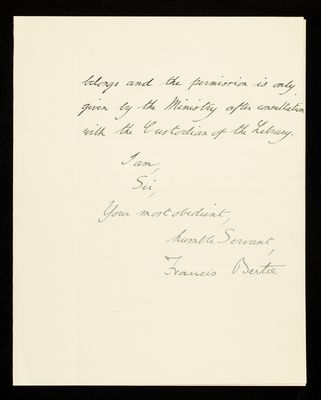 belongs and the permission is only
given by the Ministry after consultation
with the Custodian of the Library.
I am,
Sir,
Your most obedient,
humble Servant,
Francis Bertie